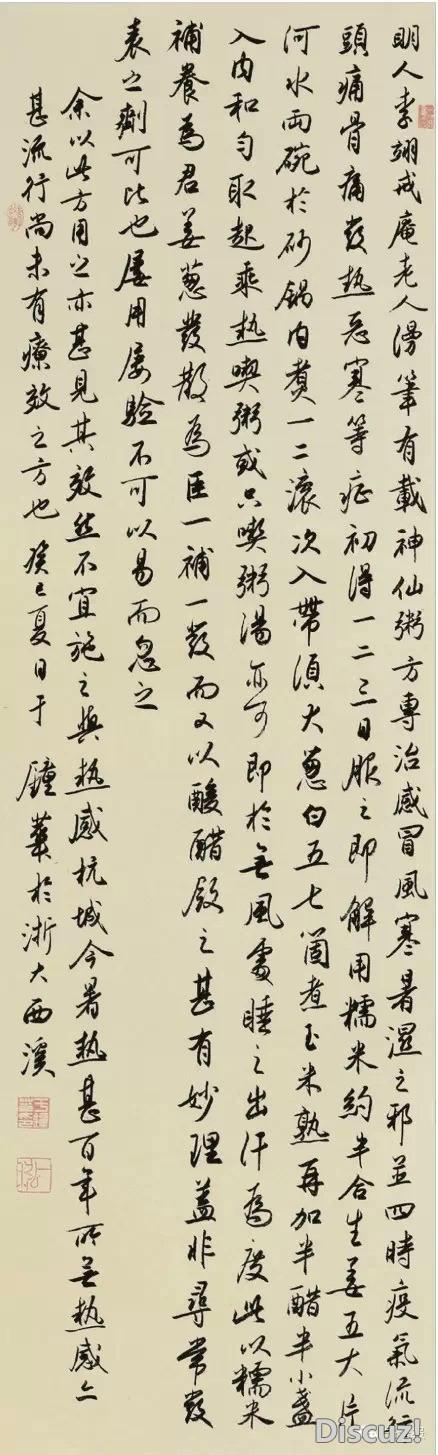 明人李翊戒庵老人漫筆有載神仙粥方專治感冒風寒暑濕之邪並四時疫氣流行
頭痛骨痛發熱惡寒等症初得一二三日服之即解用糯米約半合生姜五大片
河水兩碗於砂鍋內煮一二滾次入帶須大蔥白五七箇煮至米熟再加半醋半小盞
入內和勻取起乘熱喫粥或只喫粥湯亦可即於無風處睡之出汗為度此以糯米
補養為君姜蔥發散為臣一補一發而又以酸醋斂之甚有妙理蓋非尋常發
表之劑可比也屢用屢驗不可以易而忽之
余以此方用之亦甚見其效然不宜施之與熱感杭城今暑熱甚百年所無熱感亦
甚流行尚未有療效之方也癸巳夏日于鍾華於浙大西溪
Discuz!